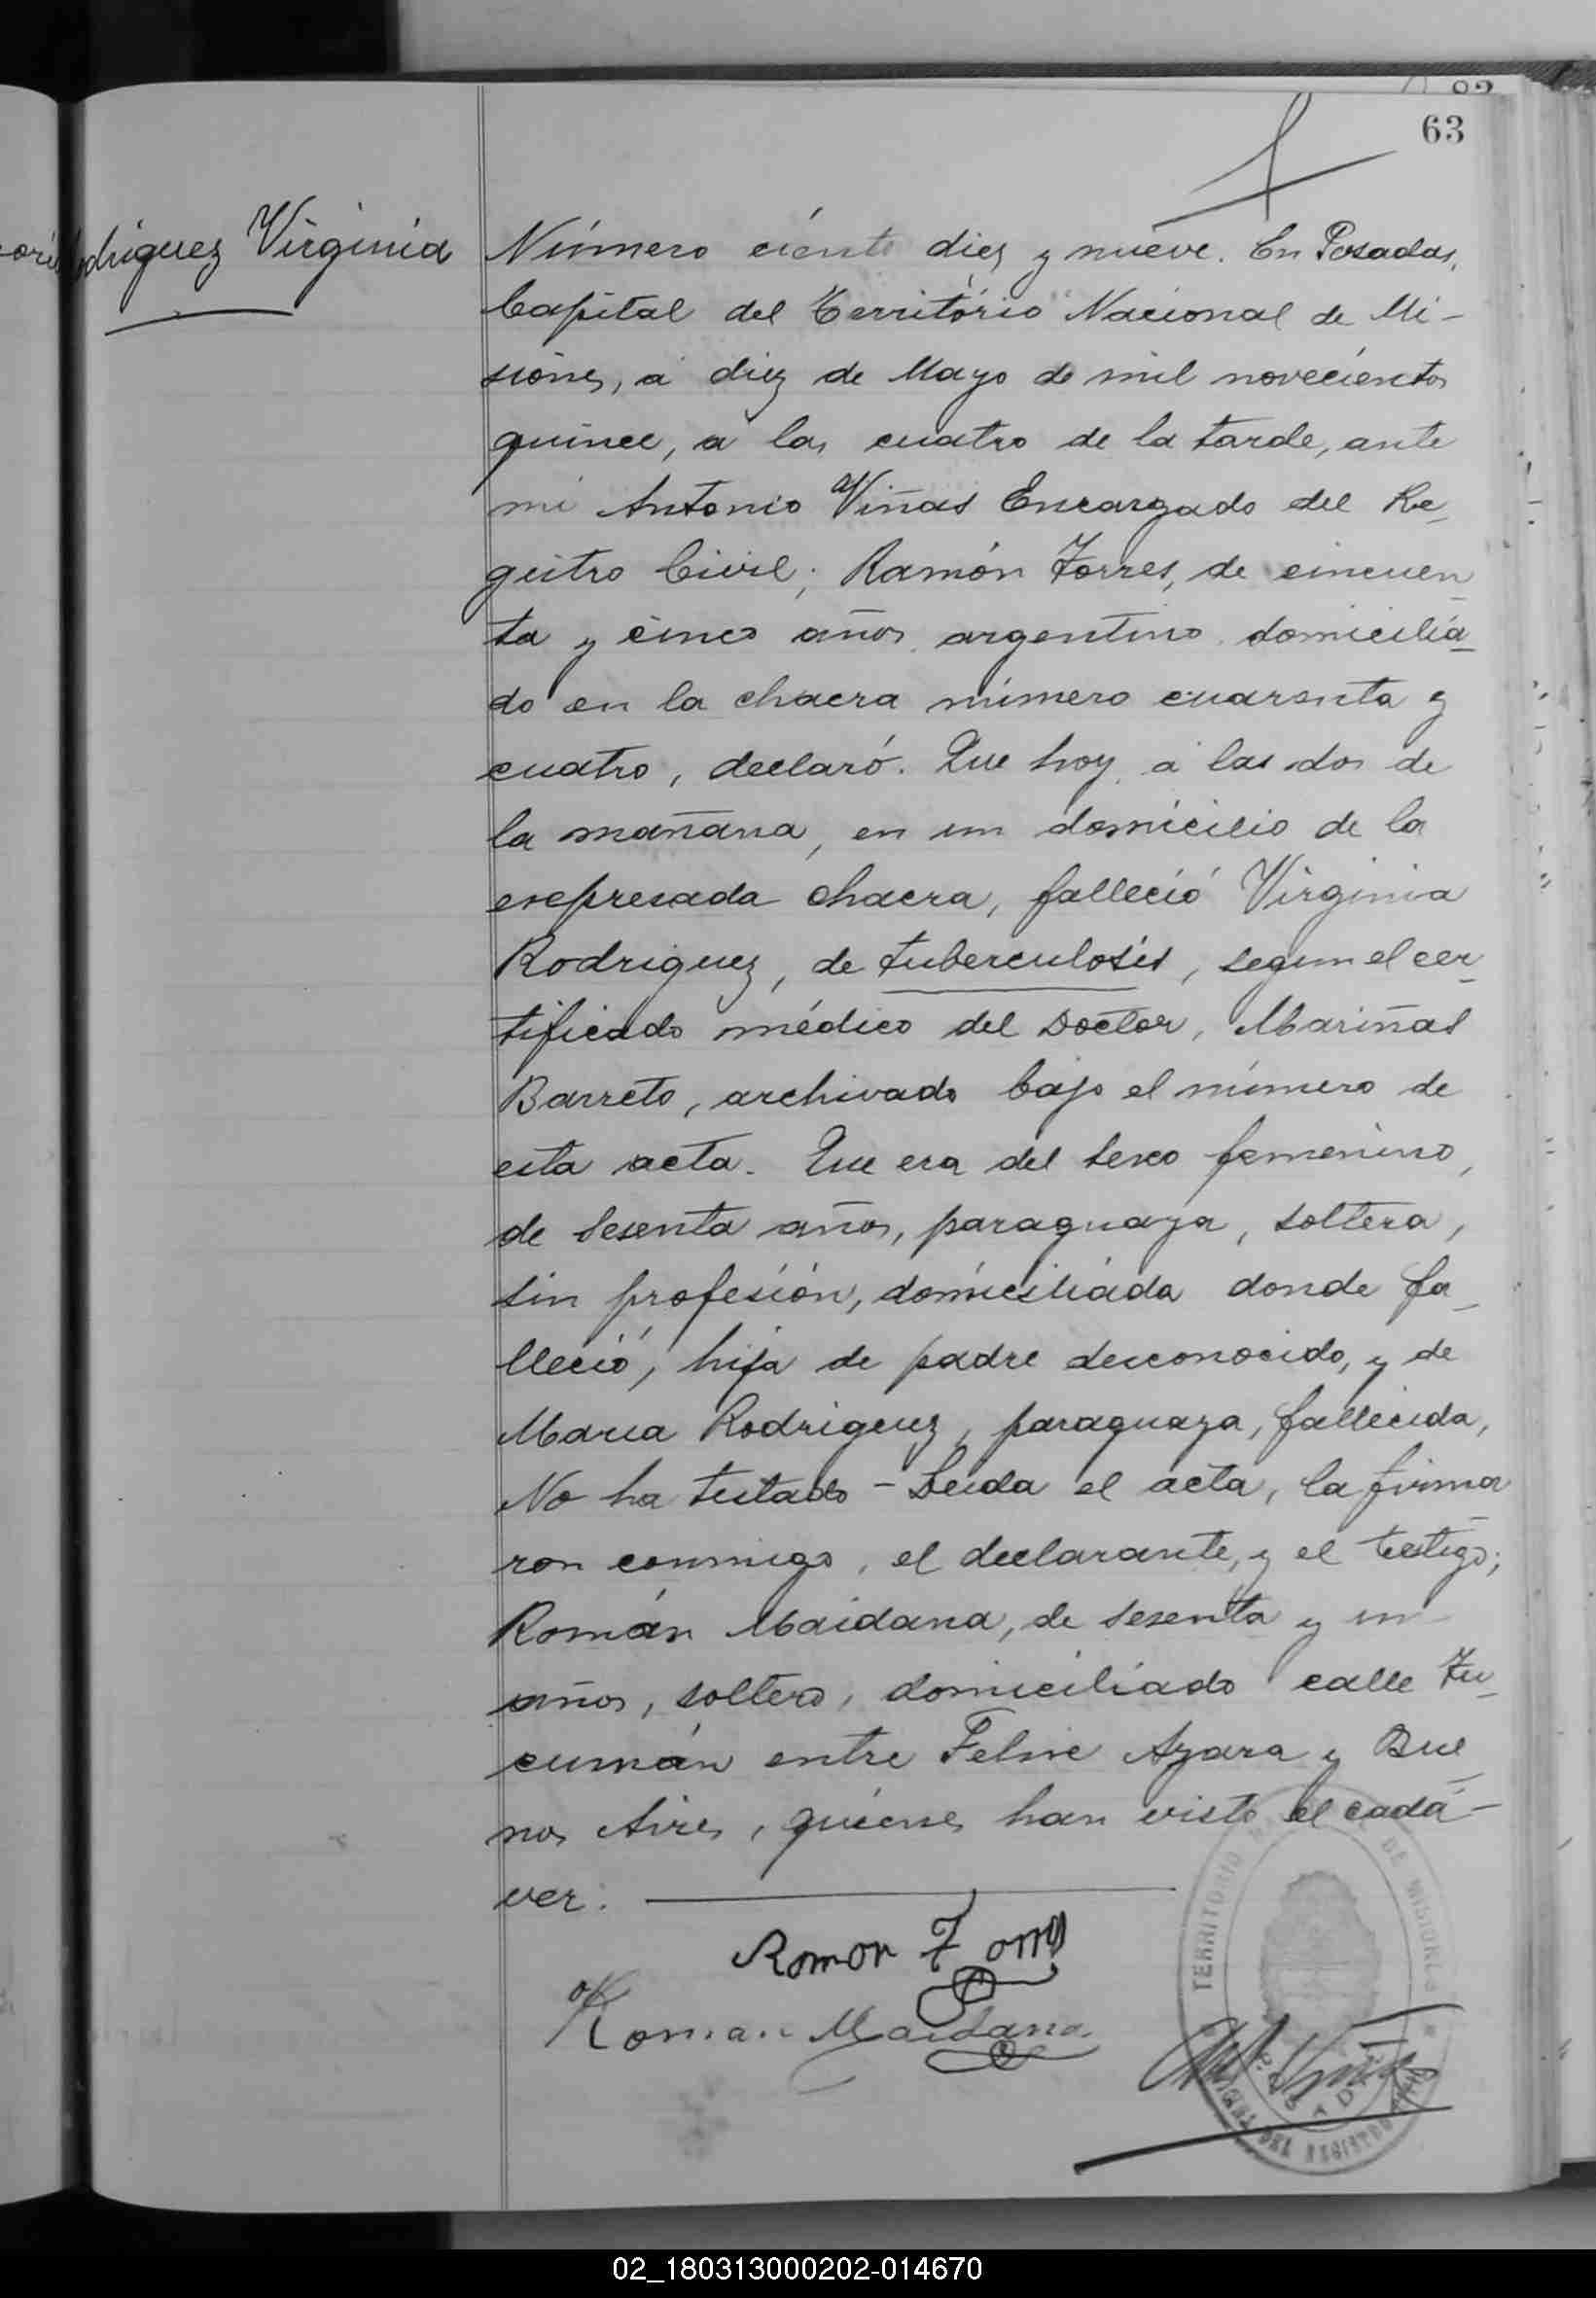 82
63
Rodriguez Virginia
Número ciento diez y nueve. En Posadas,
Capital del Territorio Nacional de Mi-
siones, á diez de Mayo de mil novecientos
quince, a las cuatro de la tarde, ante
mi Antonio Viñas Encargado del Re-
gistro Civil; Ramón Torres, de cincuen-
ta y cinco años, argentino, domicilia-
do en la chacra número cuarenta y
cuatro, declaró. Que hoy, á las dos de
la mañana, en un domicilio de la
expresada chacra, falleció Virginia
Rodriguez, de tuberculosis, segun el cer-
tificado médico del Doctor, Mariñas
Barreto, archivado bajo el número de
esta acta. Que era del sexo femenino,
de sesenta años, paraguaya, soltera,
sin profesión, domiciliada donde fa-
lleció, hija de padre desconocido, y de
Maria Rodriguez, paraguaya, fallecida,
No ha testado - Leida el acta, la firma-
ron conmigo, el declarante, y el testigo;
Román Maidana, de sesenta y un
años, soltero, domiciliado calle Tu-
cumán entre Felix Azara y Bue-
nos Aires, quienes han visto el cadá-
ver.
Ramon Torres
Roman Maidana
TERRITORIO DE MISIONES
POSADAS
DEL REGISTRO
02_180313000202-014670